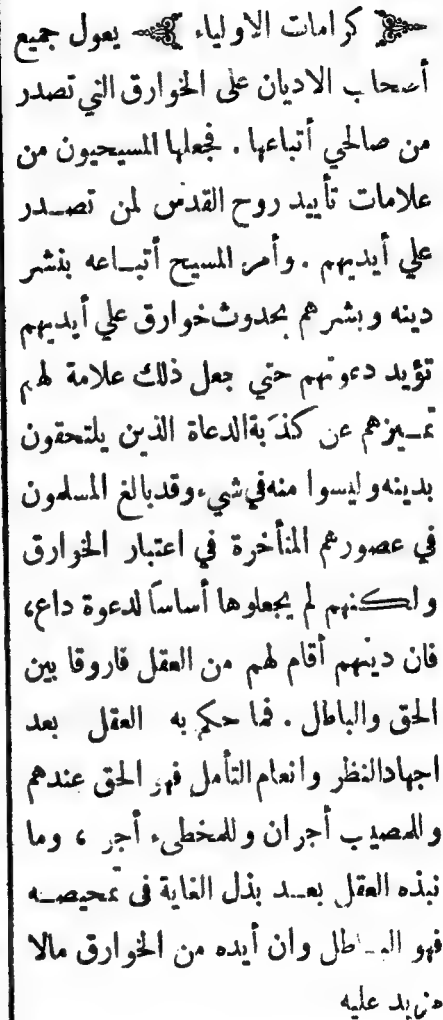 كرامات الاولياء يعول جميع
أصحاب الاديان على الخوارق التي تصدر
من صالحي أتباعها . فجعلها المسيحيون من
علامات تأييد روح القدس لمن تصدر
علي أيديهم . وأمر المسيح أتباعه بنشر
دينه وبشرهم بحدوث خوارق علي أيديهم
تؤيد دعوتهم حتي جعل ذلك علامة لهم
تميزهم عن كذَبة الدعاة الذين يلتحقون
بدينه وليسوا منه في شيء وقد بالغ المسلمون
في عصورهم المتأخرة في اعتبار الخوارق
ولكنهم لم يجعلوها أساسًا لدعوة داع،
فان دينهم أقام لهم من العقل فاروقا بين
الحق والباطل . فما حكم به العقل بعد
اجهاد النظر وانعام التأمل فهو الحق عندهم
وللمصيب أجران وللمخطيء أجر ، وما
نبذه العقل بعد بذل الغاية في تمحيصه
فهو الباطل وان أيده من الخوارق مالا
مزيد عليه